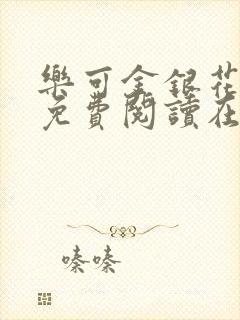 樂可金銀花
免費閱讀在
嗪嗪